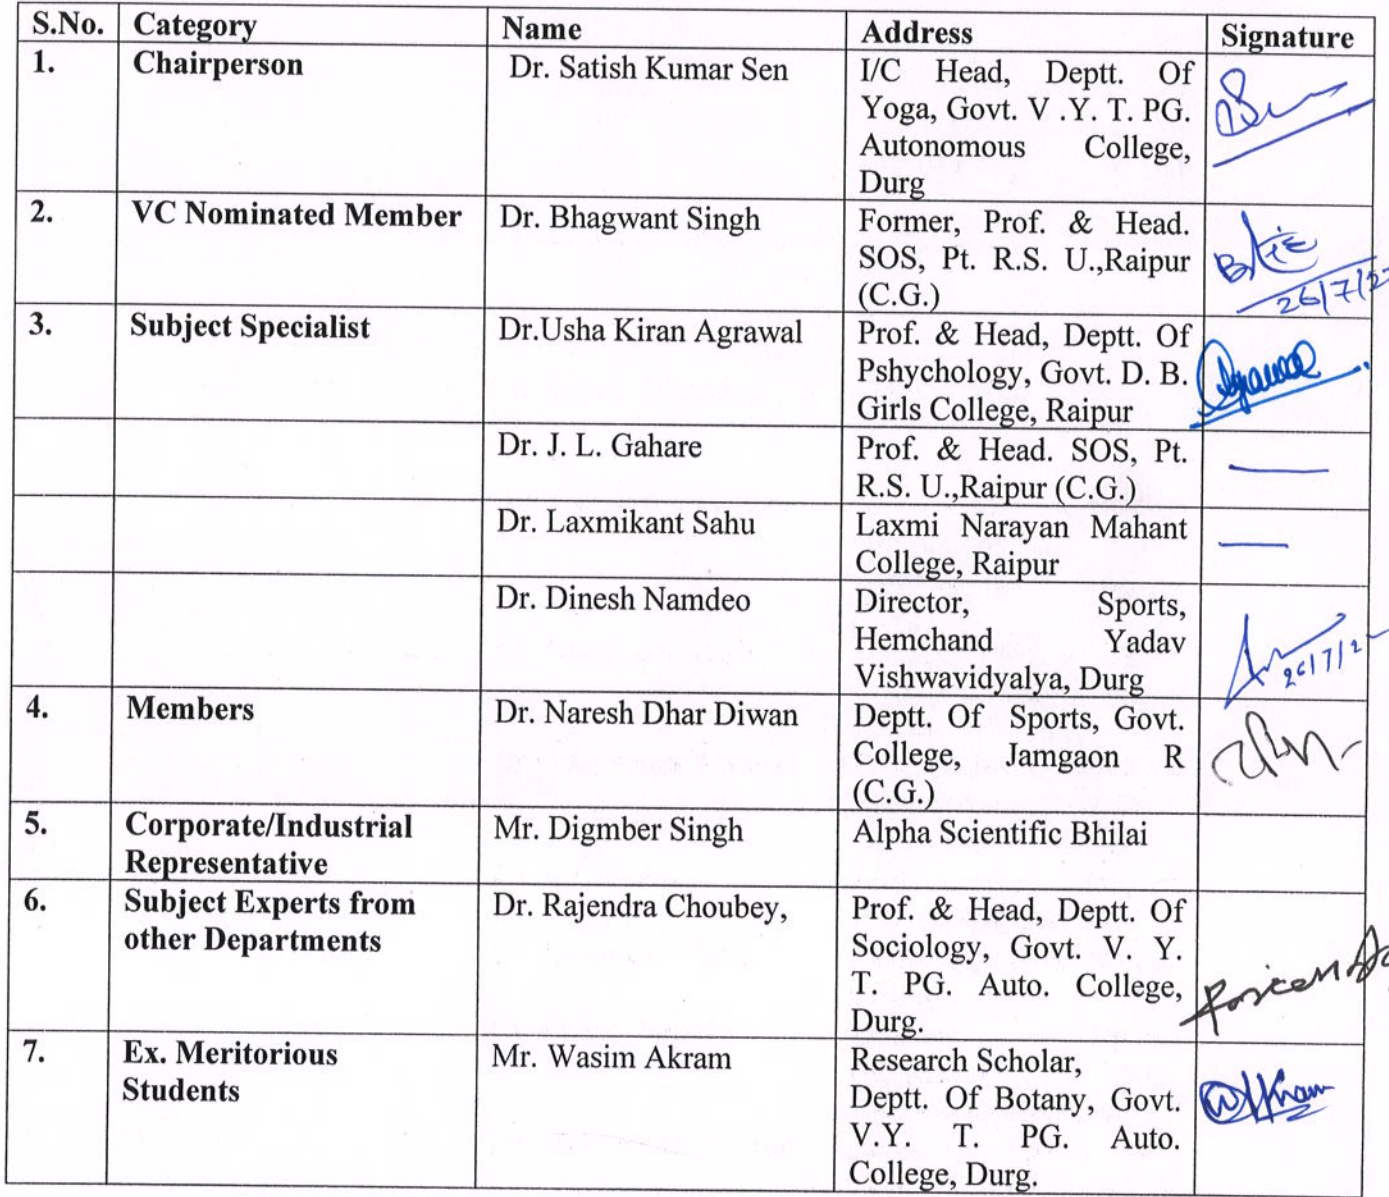 S.No. Category Name Address Signature
1. Chairperson Dr. Satish Kumar Sen I/C Head, Deptt. Of
Yoga, Govt. V .Y. T. PG.
Autonomous College,
Durg
2. VC Nominated Member Dr. Bhagwant Singh Former, Prof. & Head.
SOS, Pt. R.S. U.,Raipur
(C.G.)
26/7/2
3. Subject Specialist Dr.Usha Kiran Agrawal Prof. & Head, Deptt. Of
Pshychology, Govt. D. B.
Girls College, Raipur
Dr. J. L. Gahare Prof. & Head. SOS, Pt.
R.S. U.,Raipur (C.G.)
Dr. Laxmikant Sahu Laxmi Narayan Mahant
College, Raipur
Dr. Dinesh Namdeo Director, Sports,
Hemchand Yadav
Vishwavidyalya, Durg
26/7/2
4. Members Dr. Naresh Dhar Diwan Deptt. Of Sports, Govt.
College, Jamgaon R
(C.G.)
5. Corporate/Industrial Mr. Digmber Singh Alpha Scientific Bhilai
Representative
6. Subject Experts from Dr. Rajendra Choubey, Prof. & Head, Deptt. Of
other Departments Sociology, Govt. V. Y.
T. PG. Auto. College,
Durg.
7. Ex. Meritorious Mr. Wasim Akram Research Scholar,
Students Deptt. Of Botany, Govt.
V.Y. T. PG. Auto.
College, Durg.